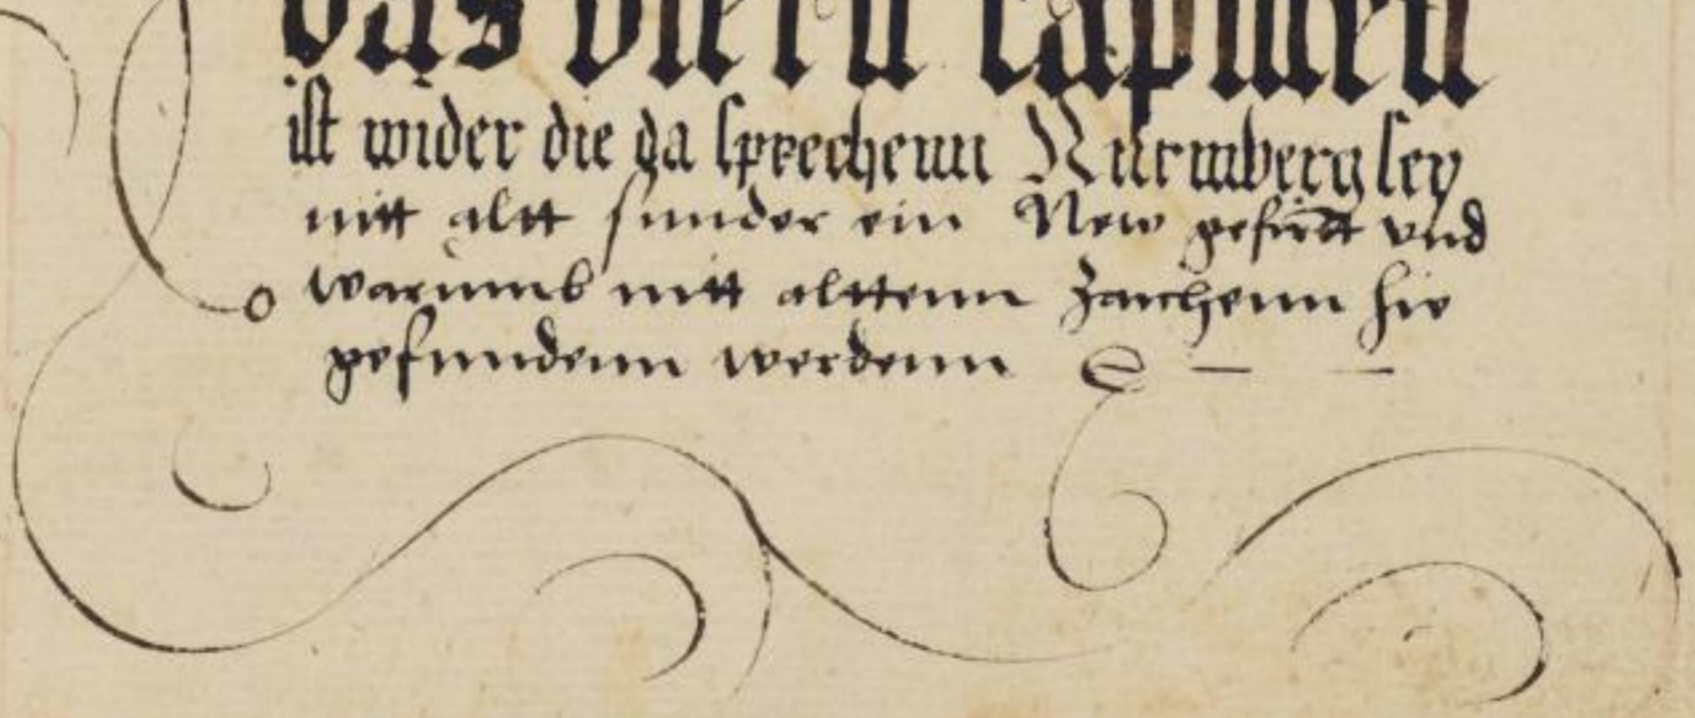 das viertt capittell
ist wider die da sprechenn Nurmberg sey
nitt altt sunder ein New gestifft vnd
warumb nitt alttenn Zaichenn hie
gefundenn werdenn